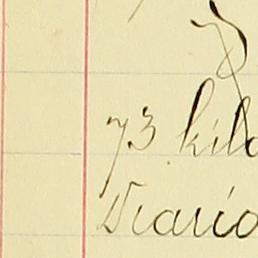 73 kilo
Diario